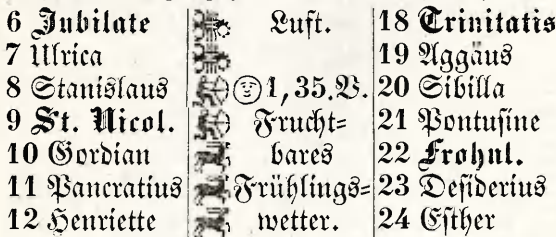 6 Jubilate Luft. 18 Trinitatis
7 Ulrica 19 Aggäus
8 Stanislaus 1, 35. V. 20 Sibilla
9 St. Nicol. Frucht= 21 Pontusine
10 Gordian bares 22 Frohnl.
11 Pancratius Frühlings= 23 Desiderius
12 Henriette wetter. 24 Esther